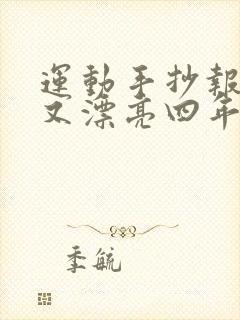 運動手抄報
又漂亮四年
季毓